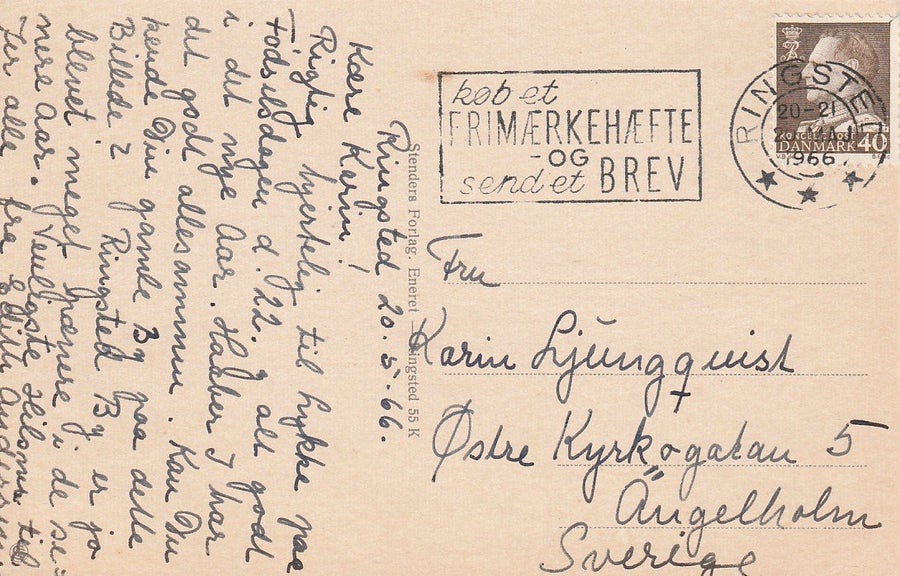 Ringsted 20.5.66.
Kære Karin!
Rigtig hjertelig til Lykke paa
Fødselsdagen d. 22 og alt godt
i det nye Aar. Haaber I har
det godt allesammen. Kan Du
kende Din gamle By paa dette
Billede? Ringsted By er jo
blevet meget pænere i de se-
nere Aar. Venligste Hilsner til
Jer alle fra Edith Andersen
Stenders Forlag. Eneret Ringsted 55 K
købet
FRIMÆRKEHÆFTE
-OG
sendet BREV
RINGSTED
20-21
1966
KONGELIG POST
DANMARK 40
Fru
Karin Ljungquist
Østre Kyrkogatan 5
Ängelholm
Sverige